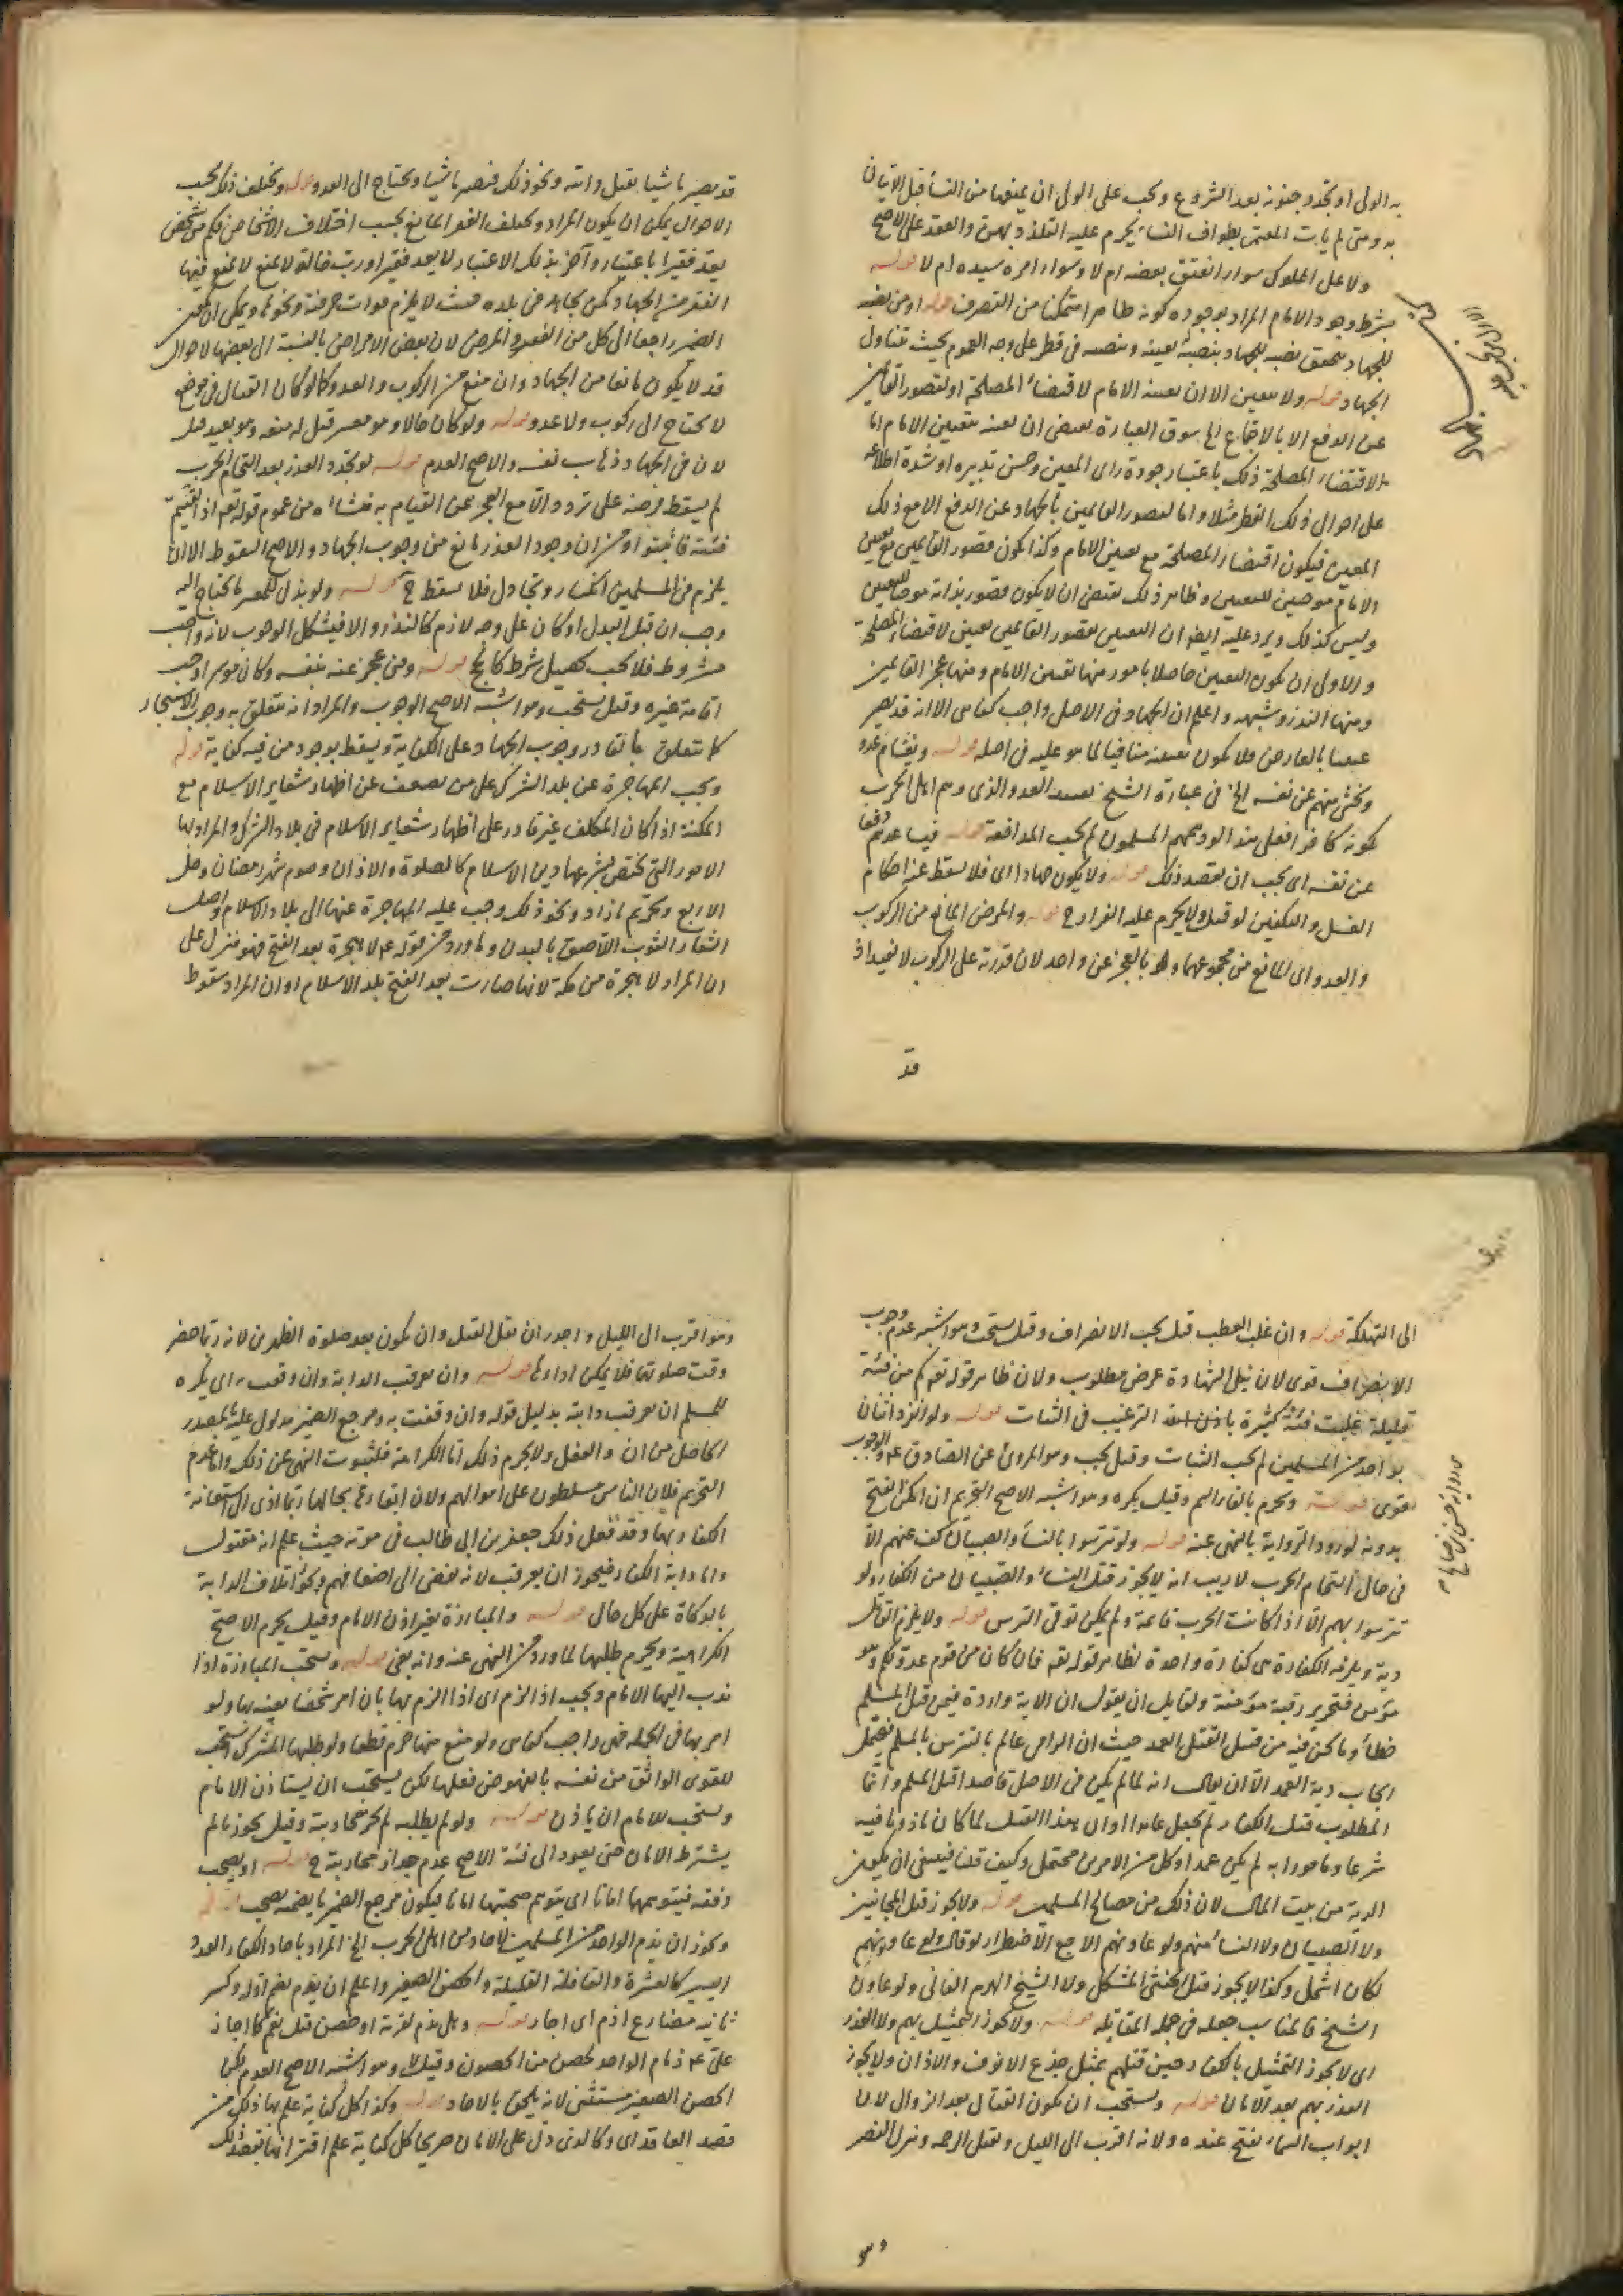 به الولى او تجدد جنونه بعد الشروع ويجب على الولى ان يمنعها من النساء قبل الاتيان
به ومتى لم يات المعتمر بطواف النساء يحرم عليه التلذذ بهن والعقد على الاصح
ولا على المملوك سواء انعتق بعضه ام لا وسواء امره سيده ام لا قوله
بشرط وجود الامام المراد بوجوده كونه ظاهرا متمكنا من التصرف قوله او من نصبه
للجهاد يتحقق نصبه للجهاد بنصبه بعينه وبنصبه فى قطر على وجه العموم بحيث يتناول
الجهاد قوله ولا يتعين الا ان يعينه الامام لاقتضاء المصلحة او لقصور القائمين
عن الدفع الا بالاجتماع الخ سوق العبارة يقتضى ان يعينه بتعيين الامام اما
لاقتضاء المصلحة ذلك باعتبار جودة راى المعين وحسن تدبيره او شدة اطلاعه
على احوال ذلك القطر مثلا واما لقصور القائمين بالجهاد عن الدفع الا مع ذلك
المعين فيكون اقتضاء المصلحة مع تعيين الامام وكذا يكون قصور القائمين مع تعيين
الامام موجبين للتعيين وظاهر ذلك يقتضى ان لا يكون قصور بذاته موجبا للتعيين
وليس كذلك ويرد عليه ايضا ان التعيين بقصور القائمين يعنى لاقتضاء المصلحة
والاولى ان يكون التعيين حاصلا بامور منها تعيين الامام ومنها عجز القائمين
ومنها النذر وشبهه واعلم ان الجهاد فى الاصل واجب كفائى الا انه قد يصير
عينيا بالعارض فلا يكون تعينه منافيا لما هو عليه فى اصله قوله ويغشاهم عدو
ويخشى منهم على نفسه الخ فى عبارة الشيخ تقييد العدو الذى دهم اهل الحرب
بكونه كافرا فعلى هذا لو دهمهم المسلمون لم يجب المدافعة قوله فيساعدهم دفعا
عن نفسه اى يجب ان يقصد ذلك قوله ولا يكون جهادا اى فلا يسقط عنه احكام
الغسل والتكفين لو قتل ولا يحرم عليه الفرار ح قوله والمرض المانع من الركوب
والعدو اى المانع من مجموعهما ولو بالعجز عن واحد لان قدرته على الركوب لا تفيد اذ
قد
قد يصير ماشيا بقتل دابته ونحو ذلك فيصير ماشيا ويحتاج الى العدو قوله ويختلف ذلك بحسب
الاحوال يمكن ان يكون المراد ويختلف الفقر المانع بحسب اختلاف الاشخاص فكم من شخص
يعد فقيرا باعتبار وآخر بذلك الاعتبار لا يعد فقيرا ورب حالة لا يمنع فيها
الفقر من الجهاد كمن يجاهد فى بلده بحيث لا يلزم فوات حرفته ونحوها ويمكن ان يكون
الضمير راجعا الى كل من الفقر والمرض لان بعض الامراض بالنسبة الى بعضها لاحوال
قد لا يكون مانعا من الجهاد وان منع من الركوب والعدو كما لو كان القتال فى موضع
لا يحتاج الى ركوب ولا عدو قوله ولو كان حالا وهو معسر قيل له منعه وهو بعيد قيل
لان فى الجهاد ذهاب نفسه والاصح العدم قوله لو تجدد العذر بعد التحام الحرب
لم يسقط فرضه على تردد الا مع العجز عن القيام به منشاءه من عموم قوله تعالى اذا لقيتم
فئة فاثبتوا ومن ان وجود العذر مانع من وجوب الجهاد والاصح السقوط الا ان
يلزم فى المسلمين انكسار وتخاذل فلا يسقط ح قوله ولو بذل للمعسر ما يحتاج اليه
وجب ان قبل البذل او كان على وجه لازم كالنذر والا فيشكل الوجوب لانه واجب
مشروط فلا يجب تحصيل شرطه كالحج قوله ومن عجز عنه بنفسه وكان موسرا وجب
اقامة غيره وقيل يستحب وهو اشبه الاصح الوجوب والمراد انه يتعلق به وجوب الاستيجار
كما يتعلق بالقادر وجوب الجهاد على الكفاية ويسقط بوجود من فيه كفاية قوله
ويجب المهاجرة عن بلد الشرك على من يضعف عن اظهار شعاير الاسلام مع
المكنة اذا كان المكلف غير قادر على اظهار شعاير الاسلام فى بلاد الشرك والمراد بها
الامور التى يختص بشرعها دين الاسلام كالصلوة والاذان وصوم شهر رمضان وحل
الاربع وتحريم ما زاد ونحو ذلك وجب عليه المهاجرة عنها الى بلاد الاسلام واصل
الشعار الثوب اللاصق بالبدن وما ورد من قوله ع لا هجرة بعد الفتح فهو منزل على
ان المراد لا هجرة من مكة لانها صارت بعد الفتح بلد الاسلام او ان المراد سقوط
الى التهلكة قوله وان غلب العطب قيل يجب الانصراف وقيل يستحب وهو اشبه عدم وجوب
الانصراف قوى لان نيل الشهادة غرض مطلوب ولان ظاهر قوله تعالى كم من فئة
قليلة غلبت فئة كثيرة باذن الله الترغيب فى الثبات قوله ولو انفرد اثنان
بواحد من المسلمين لم يجب الثبات وقيل يجب وهو المروى عن الصادق ع والوجوب
اقوى قوله ويحرم بالقاء السم وقيل يكره وهو اشبه الاصح التحريم ان امكن الفتح
بدونه لورود الرواية بالنهى عنه قوله ولو تترسوا بالنساء والصبيان كف عنهم الا
فى حال التحام الحرب لا ريب انه لا يجوز قتل النساء والصبيان من الكفار ولو
تترسوا بهم الا اذا كانت الحرب قائمة ولم يمكن توقى الترس قوله ولا يلزم القاتل
دية ويلزمه الكفارة هى كفارة واحدة لظاهر قوله تعالى فان كان من قوم عدو لكم وهو
مؤمن فتحرير رقبة مؤمنة ولقايل ان يقول ان الاية واردة فيمن قتل المسلم
خطأ وما نحن فيه من قبيل القتل العمد حيث ان الرامى عالم بالتترس بالمسلم فيحتمل
ايجاب دية العمد الا ان يقال انه لما لم يكن فى الاصل قاصدا قتل المسلم وانما
المطلوب قتل الكفار لم يجعل عامدا او ان هذا القتل لما كان ماذونا فيه
شرعا ومامورا به لم يكن عمدا وكل من الامرين محتمل وكيف قلنا فينبغى ان يكون
الدية من بيت المال لان ذلك من مصالح المسلمين قوله ولا يجوز قتل المجانين
ولا الصبيان ولا النساء منهم ولو عاونهم الا مع الاضطرار لو قال ولو عاونهم
لكان اشمل وكذا لا يجوز قتل الخنثى المشكل ولا الشيخ الهرم الفانى ولو عاون
الشيخ فالمناسب جعله فى جملة المقاتلة قوله ولا يجوز التمثيل بهم ولا الغدر
اى لا يجوز التمثيل بالكفار حين قتلهم بمثل جذع الانوف والاذان ولا يجوز
الغدر بهم بعد الامان قوله ويستحب ان يكون القتال بعد الزوال لان
ابواب السماء تفتح عنده ولانه اقرب الى الليل ويقبل الرحمة وينزل النصر
وهو
وهو اقرب الى الليل واجدر ان يقل القتل وان يكون بعد صلوة الظهرين لانه ربما حضر
وقت صلوتها فلا يمكن اداءها قوله وان يعرقب الدابة وان وقفت به اى يكره
للمسلم ان يعرقب دابته بدليل قوله وان وقفت به ومرجع الضمير مدلول عليه بالمصدر
الحاصل من ان والفعل ولا يحرم ذلك اما الكراهة فلثبوت النهى عن ذلك واما عدم
التحريم فلان الناس مسلطون على اموالهم ولان ابقاءها بحالها ربما ادى الى استعانة
الكفار بها وقد فعل ذلك جعفر بن ابى طالب فى موتة حيث علم انه مقتول
واما دابة الكفار فيجوز ان يعرقب لانه يفضى الى اضعافهم ويجوز اتلاف الدابة
بالذكاة على كل حال قوله والمبارزة بغير اذن الامام وقيل يحرم الاصح
الكراهية ويحرم طلبها لما ورد من النهى عنه وانه بغى قوله ويستحب المبارزة اذا
ندب اليها الامام ويجب اذا لزم اى اذا الزم بها بان امر شخصا بعينه بها ولو
امر بها فى الجملة فهى واجب كفائى ولو منع منها حرم قطعا ولو طلبها المشرك استحب
للقوى الواثق من نفسه بالنهوض فعلها لكن يستحب ان يستاذن الامام
ويستحب للامام ان ياذن قوله ولو لم يطلبه لم يجز محاربته وقيل يجوز ما لم
يشترط الامان حتى يعود الى فئة الاصح عدم جواز محاربته ح قوله او يصحب
رفقة فيتوهمها امانا اى يتوهم صحبتها امانا فيكون مرجع الضمير ما يضمنه يصحب قوله
ويجوز ان يذم الواحد من المسلمين لاحاد من اهل الحرب الخ المراد باحاد الكفار العدد
اليسير كالعشرة والقافلة القليلة والحصن الصغير واعلم ان يذم بضم اوله وكسر
ثانيه مضارع اذم اى اجار قوله وهل يذم لقرية او حصن قيل نعم كما اجاز
على ع ذمام الواحد لحصن من الحصون وقيل لا وهو اشبه الاصح العدم لكن
الحصن الصغير مستثنى لانه يلحق بالاحاد قوله وكذا كل كناية علم بها ذلك من
قصد العاقد اى وكالذى دل على الامان صريحا كل كناية علم اقترانها بقصد ذلك